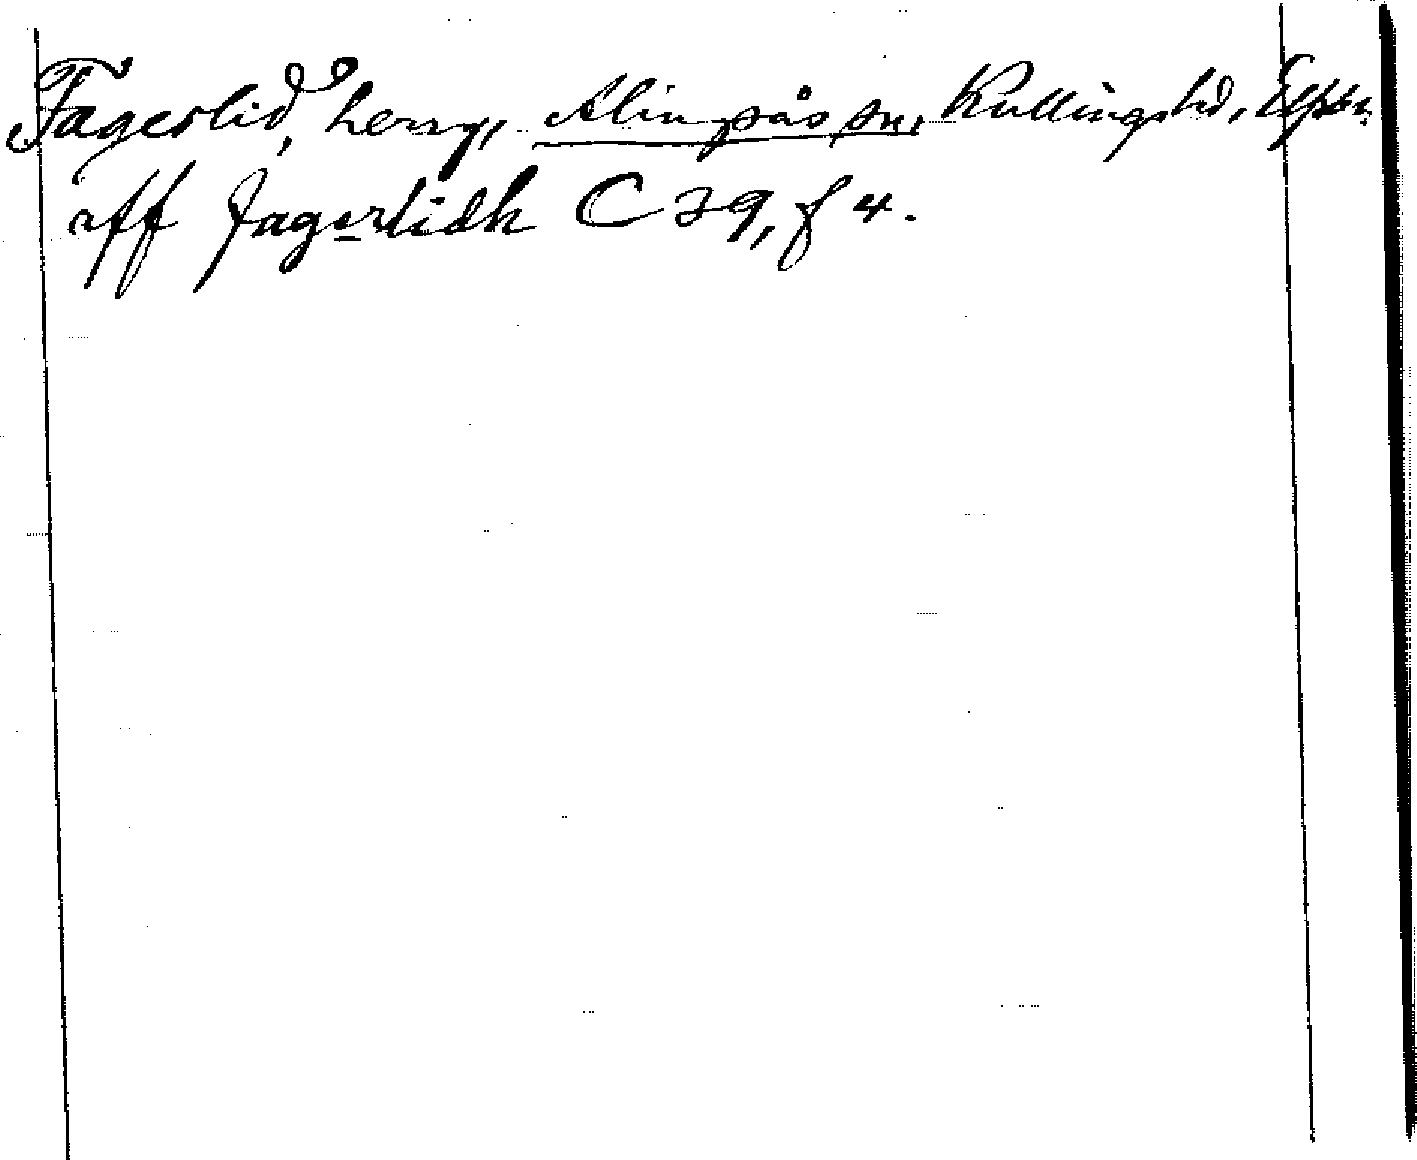 Fagerlid, hem, Alingsås sn, Kullings hd, Elfsb.
aff Fagerlidh C 29, f 4.